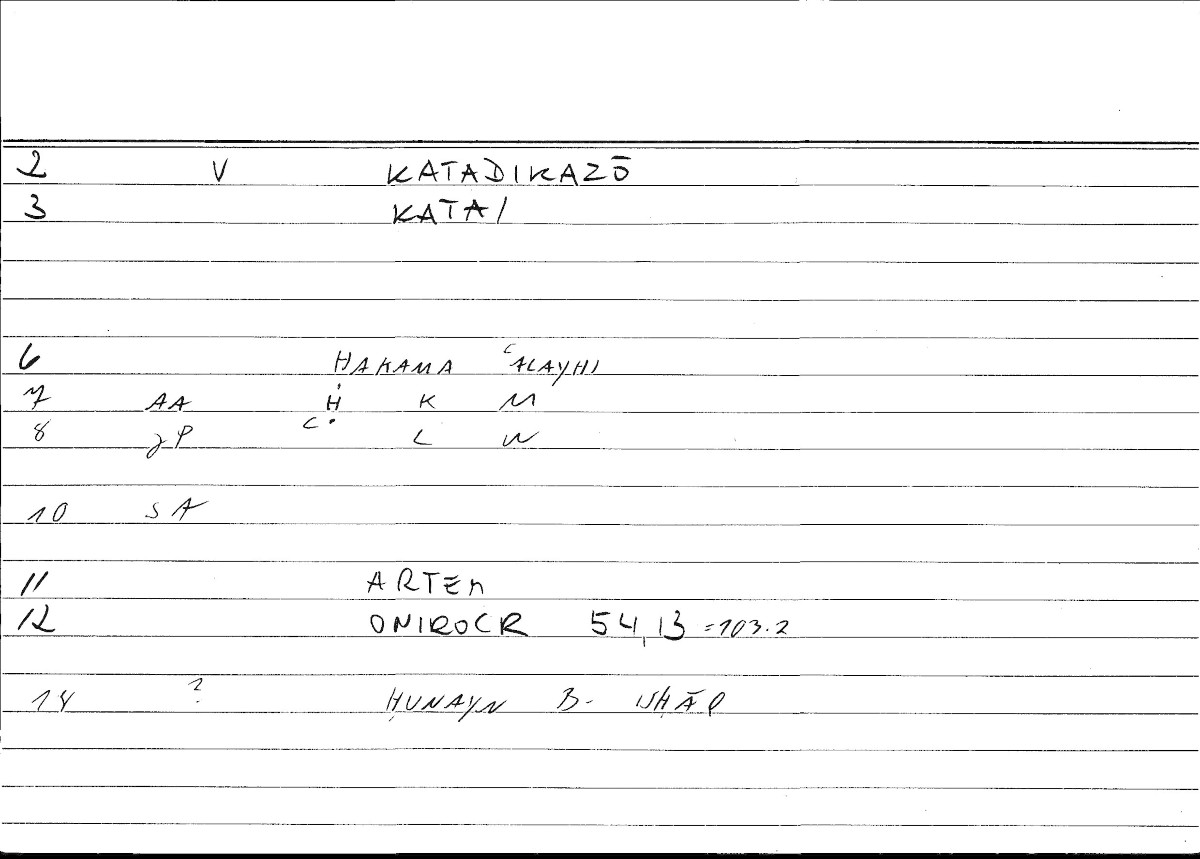 2 V KATADIKAZŌ
3 KATA/
6 HAKAMA ʿALAYHI
7 AA Ḣ K M
8 JP ʿ. L W
10 SA
11 ARTEM
12 ONIROCR 54,13 =103.2
14 ? ḤUNAYN B. ISḤĀQ